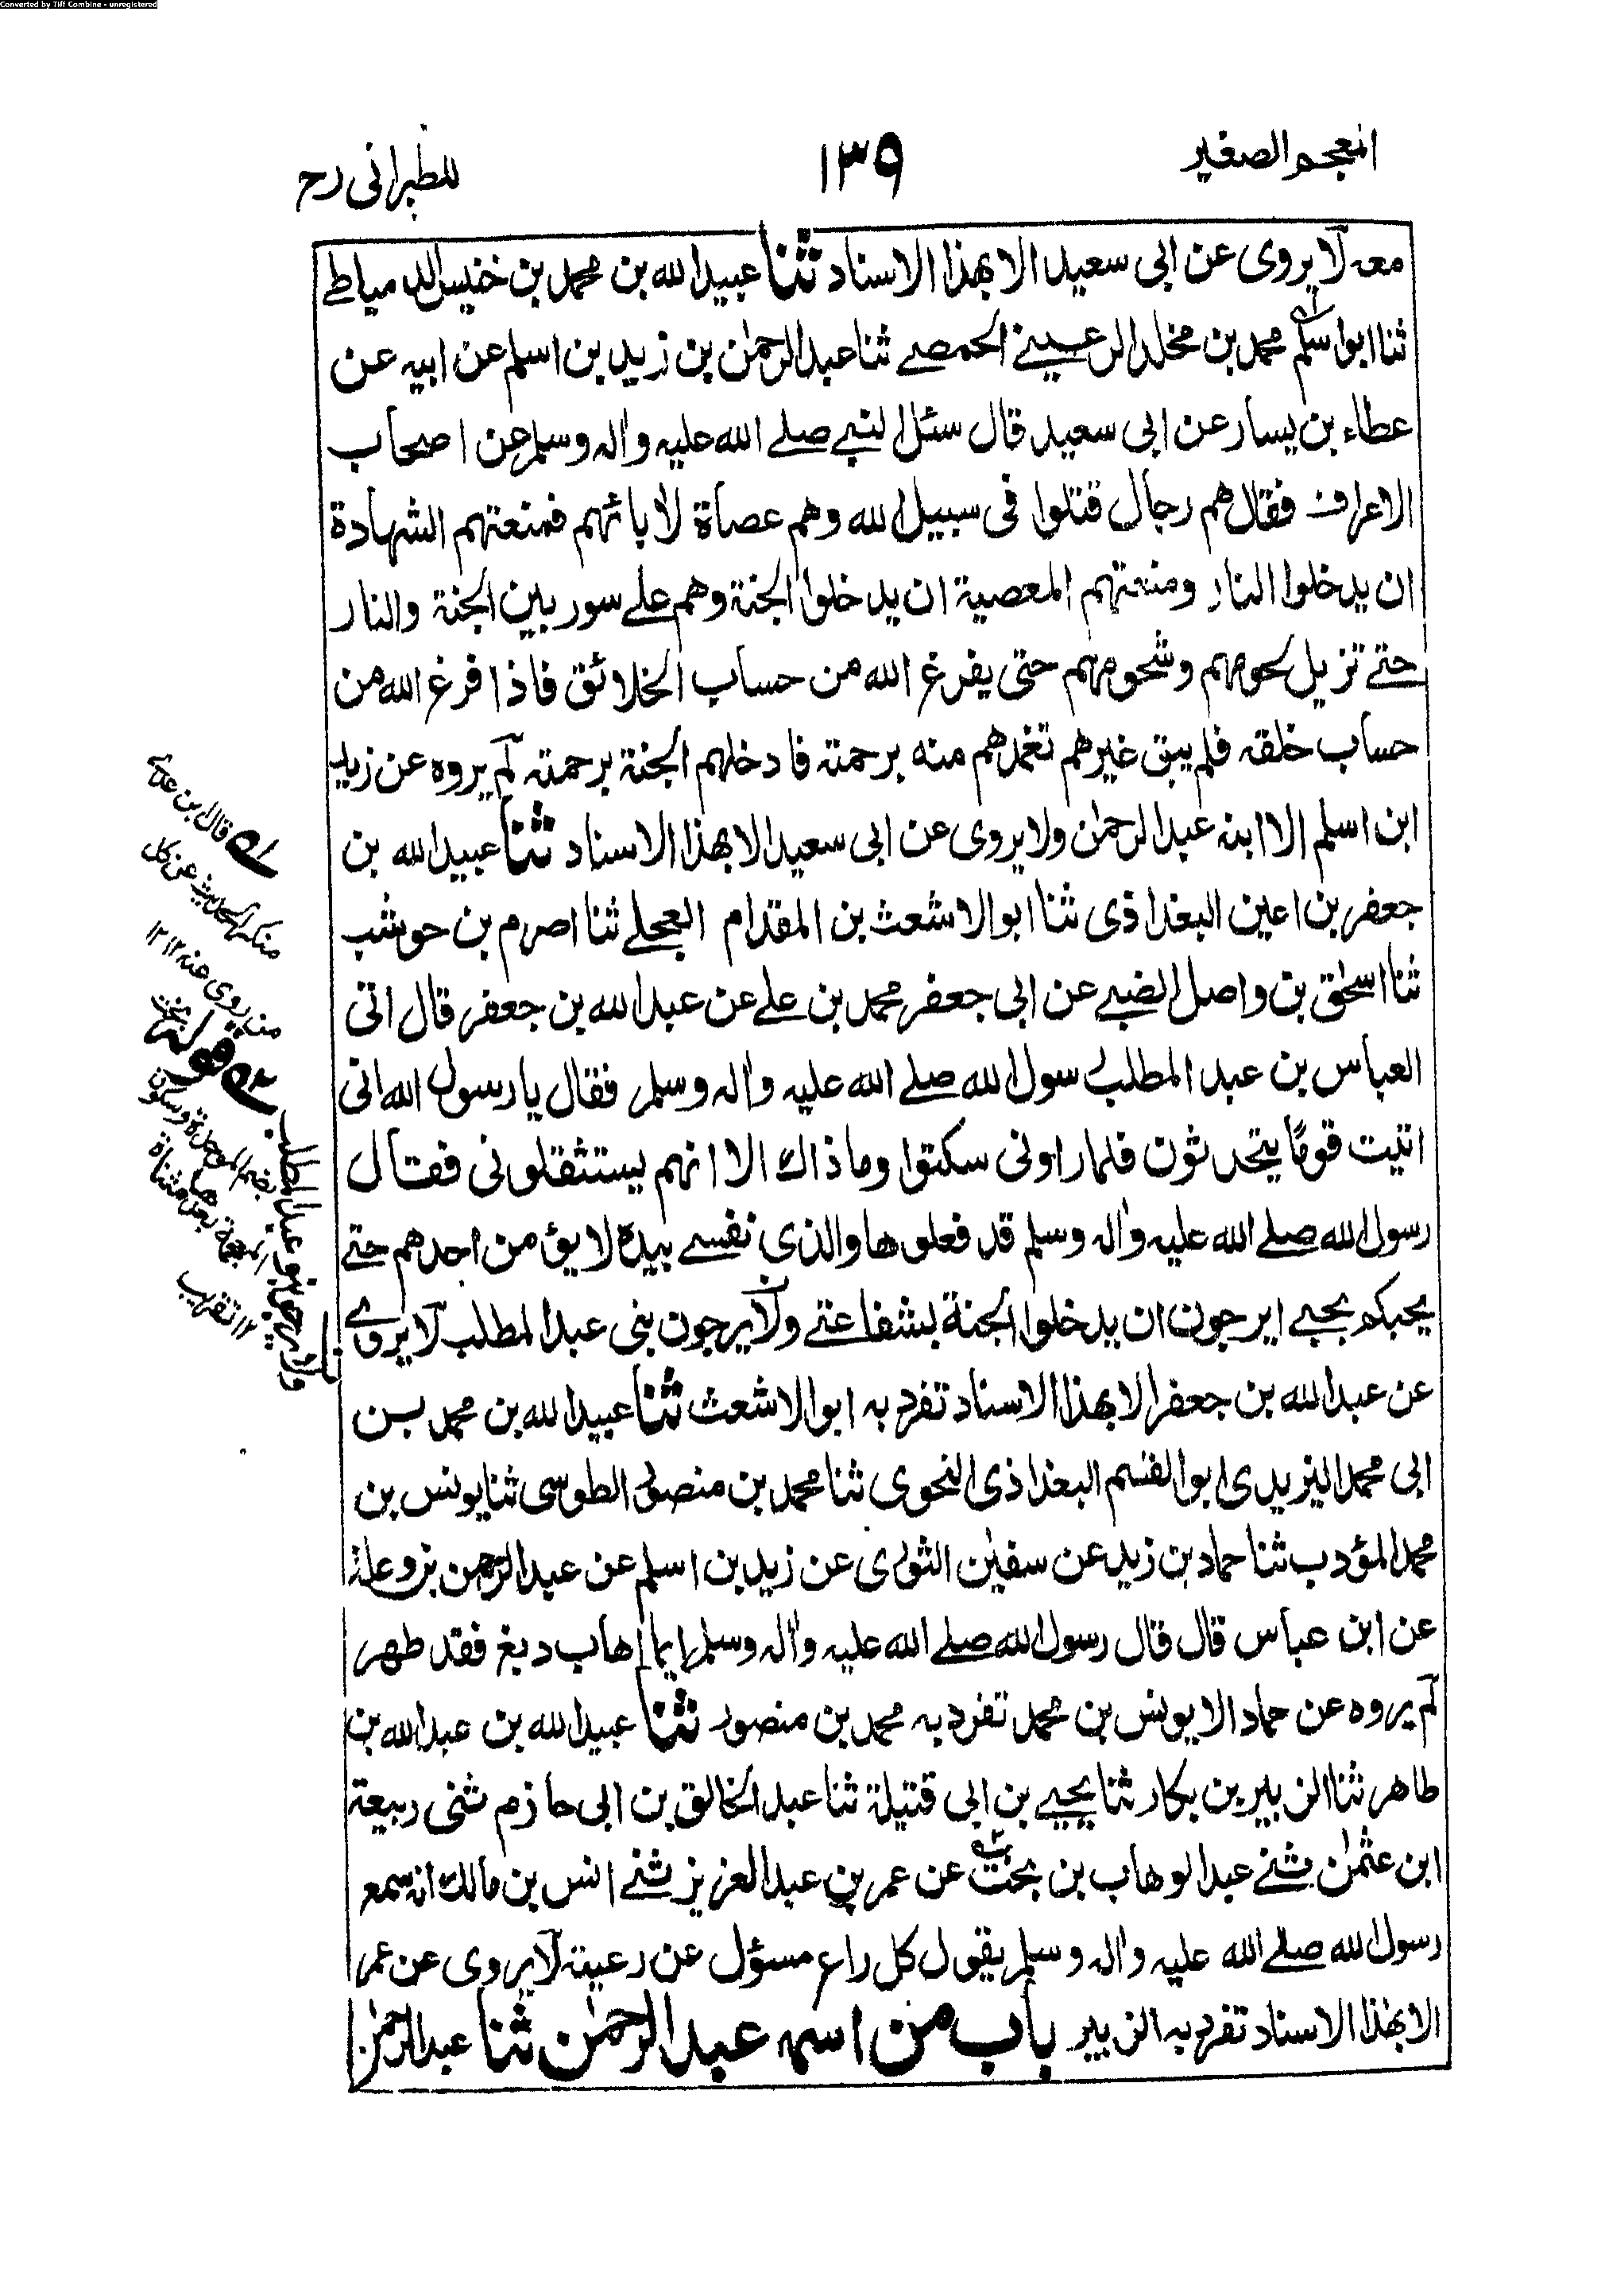 Converted by Tiff Combine - unregistered
المعجم الصغير
١٣٩
للطبرانی رح
معہ لا يروى عن ابى سعيد الا بهذا الاسناد ثنا عبيد الله بن محمد بن خنيس الدمياطے
ثنا ابو اسلم محمد بن مخلد الرعينے الحمصے ثنا عبد الرحمٰن بن زيد بن اسلم عن ابيہ عن
عطاء بن يسار عن ابى سعيد قال سئل النبے صلے الله عليہ واٰلہ وسلم عن اصحاب
الاعراف فقال هم رجال قتلوا فى سبيل الله وهم عصاة لابائهم فمنعتهم الشهادة
ان يدخلوا النار ومنعتهم المعصية ان يدخلوا الجنة وهم علے سور بين الجنة والنار
حتے تزيل لحومهم وشحومهم حتى يفرغ الله من حساب الخلائق فاذا فرغ الله من
حساب خلقہ فلم يبق غيرهم تغمدهم منہ برحمتہ فادخلهم الجنة برحمتہ لم يروه عن زيد
ابن اسلم الا ابنہ عبد الرحمٰن ولا يروى عن ابى سعيد الا بهذا الاسناد ثنا عبيد الله بن
جعفر بن اعين البغداذى ثنا ابو الاشعث بن المقدام العجلے ثنا اصرم بن حوشب
ثنا اسحٰق بن واصل الضبے عن ابى جعفر محمد بن علے عن عبد الله بن جعفر قال اتى
العباس بن عبد المطلب رسول الله صلے الله عليہ واٰلہ وسلم فقال يا رسول الله انى
اتيت قومًا يتحدثون فلما راونى سكتوا وما ذاك الا انهم يستثقلونى فقال
رسول الله صلے الله عليہ واٰلہ وسلم قد فعلوها والذى نفسے بيده لا يؤمن احدهم حتے
يحبكم بحبے ايرجون ان يدخلوا الجنة بشفاعتے ولا يرجون بنى عبد المطلب لا يروے
عن عبد الله بن جعفر الا بهذا الاسناد تفرد بہ ابو الاشعث ثنا عبيد الله بن محمد بن
ابى محمد اليزيدى ابو القٰسم البغداذى النحوى ثنا محمد بن منصور الطوسى ثنا يونس بن
محمد المؤدب ثنا حماد بن زيد عن سفيٰن الثورى عن زيد بن اسلم عن عبد الرحمن بن وعلة
عن ابن عباس قال قال رسول الله صلے الله عليہ واٰلہ وسلم ايما اهاب دبغ فقد طهر
لم يروه عن حماد الا يونس بن محمد تفرد بہ محمد بن منصور ثنا عبيد الله بن عبد الله بن
طاهر ثنا الزبير بن بكار ثنا يحيے بن ابى قتيلة ثنا عبد الخالق بن ابى حازم ثنى ربيعة
ابن عثمٰن ثنے عبد الوهاب بن بخت عن عمر بن عبد العزيز ثنے انس بن مالك انہ سمع
رسول الله صلے الله عليہ واٰلہ وسلم يقول كل راع مسؤل عن رعيتہ لا يروى عن عمر
الا بهٰذا الاسناد تفرد بہ الزبير باب من اسمہ عبد الرحمٰن ثنا عبد الرحمٰن
قال بن عدے
منكر الحديث عن كل
من روى عنہ ١٢
قولہ بخت
بضم الموحدة وسكون
المعجمة بعدها مثناة
١٢ تقريب